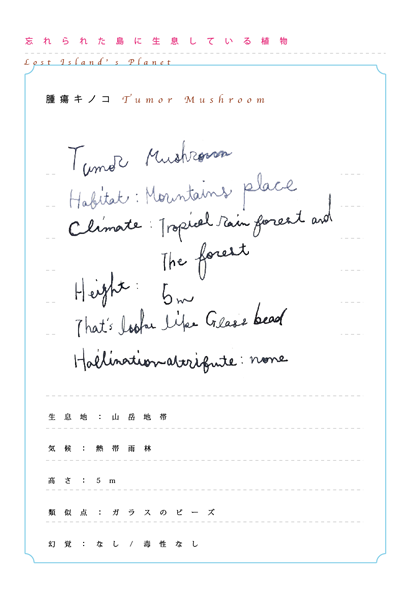 忘れられた島に生息している植物
Lost Island's Planet
腫瘍キノコ Tumor Mushroom
Tumor Mushroom
Habitat : Mountains place
Climate : Tropical rain forest and
The forest
Height : 5m
That's looke like Glass bead
Hallination attrifute : none
生息地：山岳地帯
気候：熱帯雨林
高さ：5m
類似点：ガラスのビーズ
幻覚：なし/毒性なし